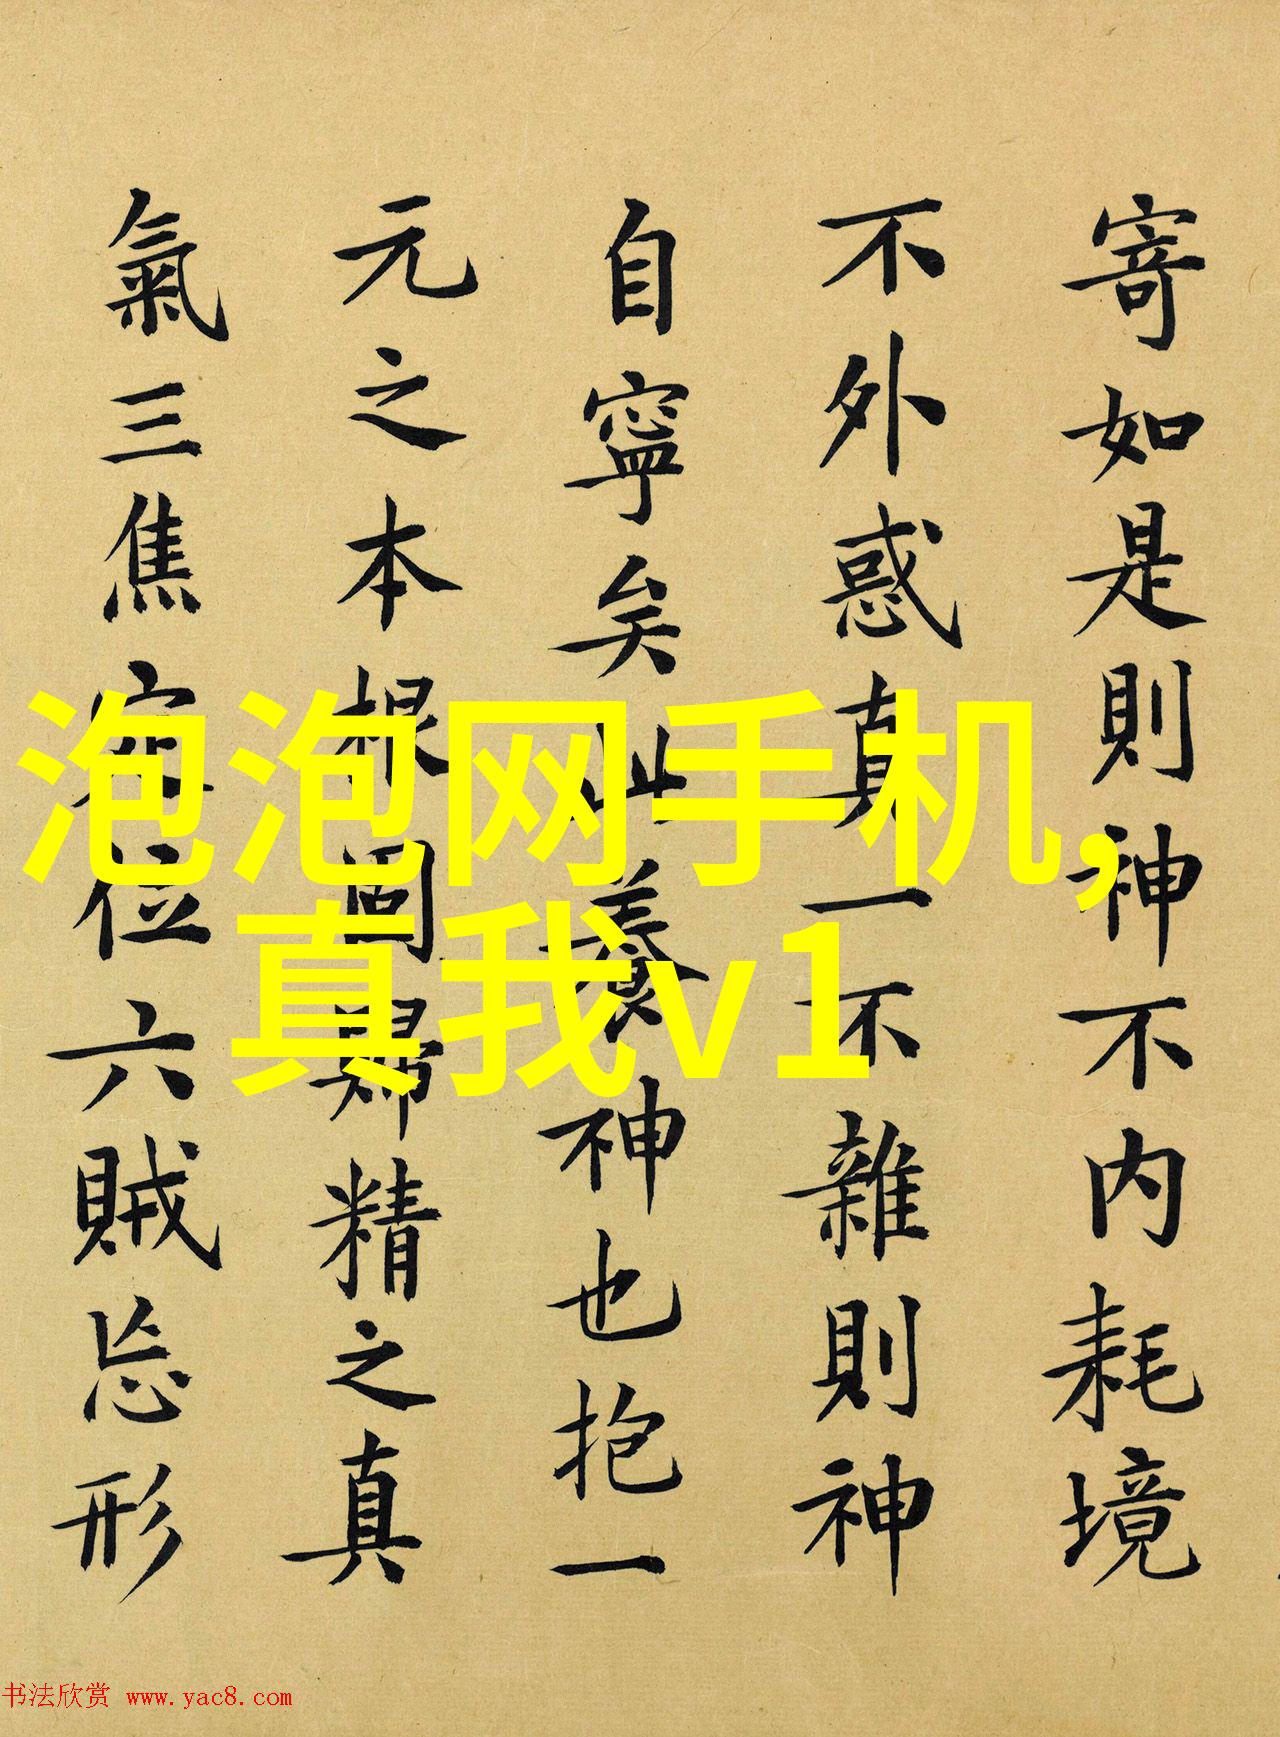 寄如是則神不内耗境
不外惑真一不雜則神
自寧矣此養神也抱一
元之本根固歸精之真
氣三焦定位六賊忘形
泡泡网手机,
真我v1
书法欣赏 www.yac8.com